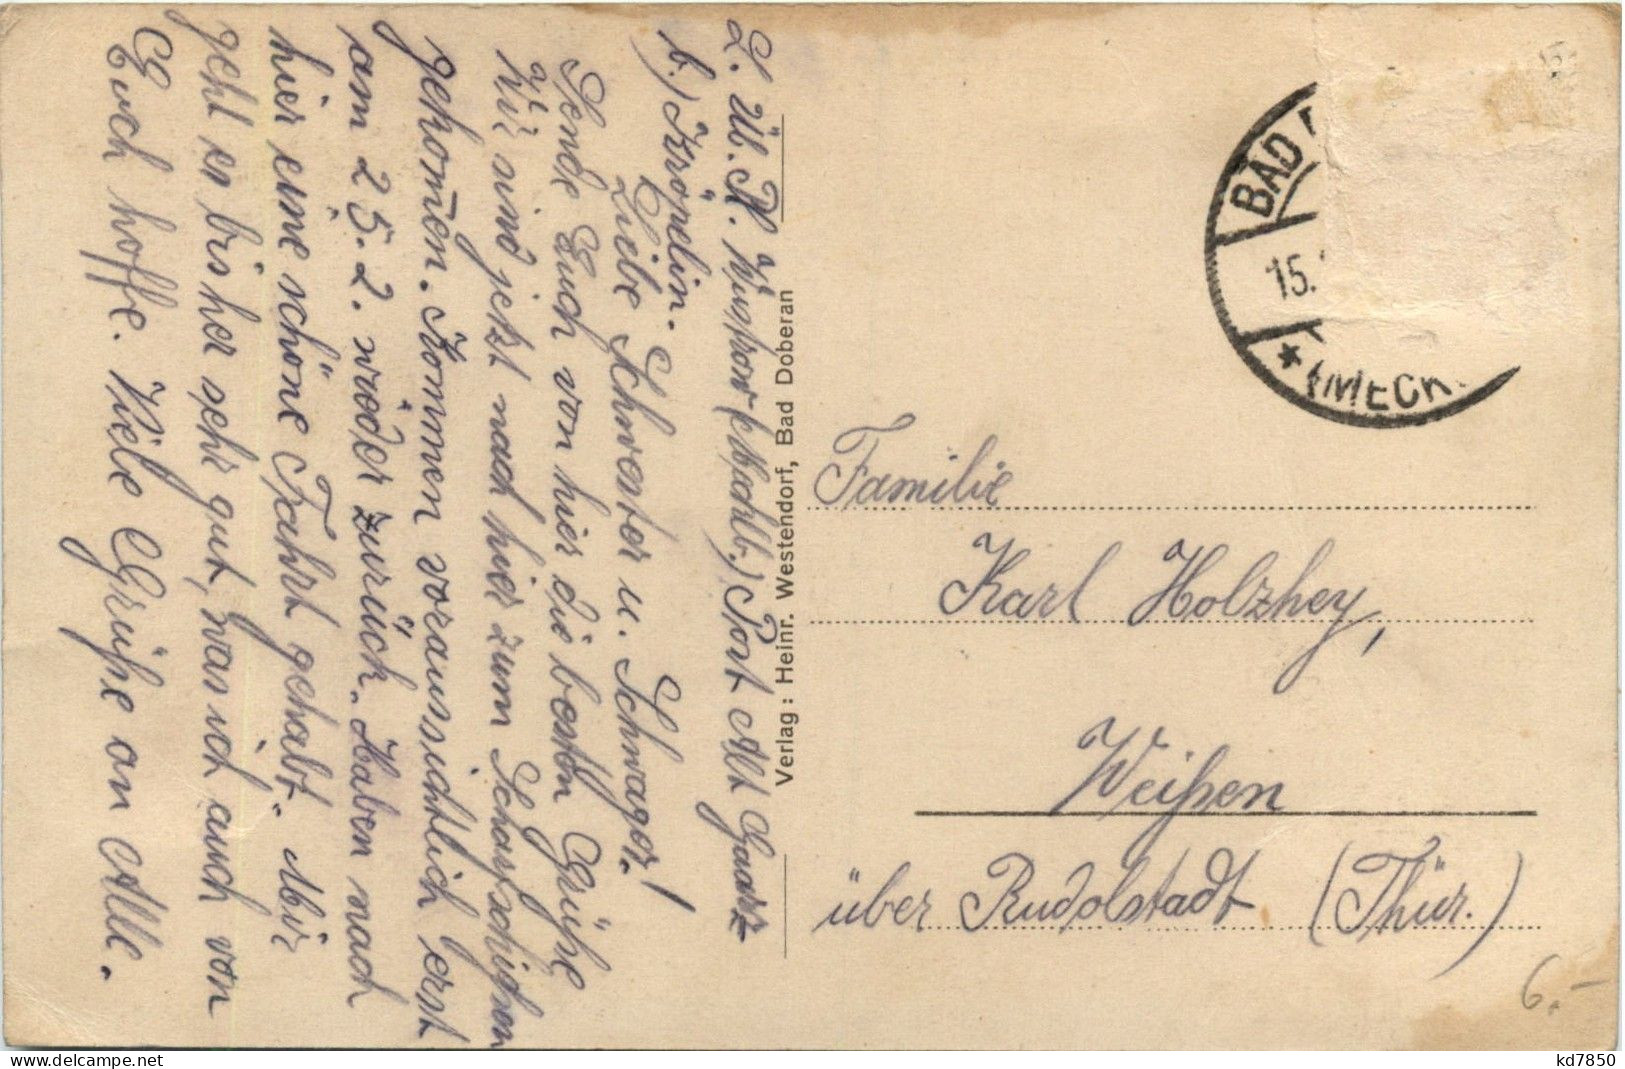 Z. Üb. Pl. Wustrow (Mecklb.) Post Alt Gaarz
b.) Kröpelin.
Liebe Schwester u. Schwager!
Sende Euch von hier die besten Grüße
Wir sind jetzt nach hier zum Scharfschießen
gekom̄en. Kommen voraussichtlich erst
am 25.2. wieder zurück. Haben nach
hier eine schöne Fahrt gehabt. Mir
geht es bisher sehr gut, was ich auch von
Euch hoffe. Viele Grüße an Alle.
Verlag: Heinr. Westendorf, Bad Doberan
BAD
15.
(MECK
Familie
Karl Holzhey,
Weißen
über Rudolstadt (Thür.)
6.-
kd7850